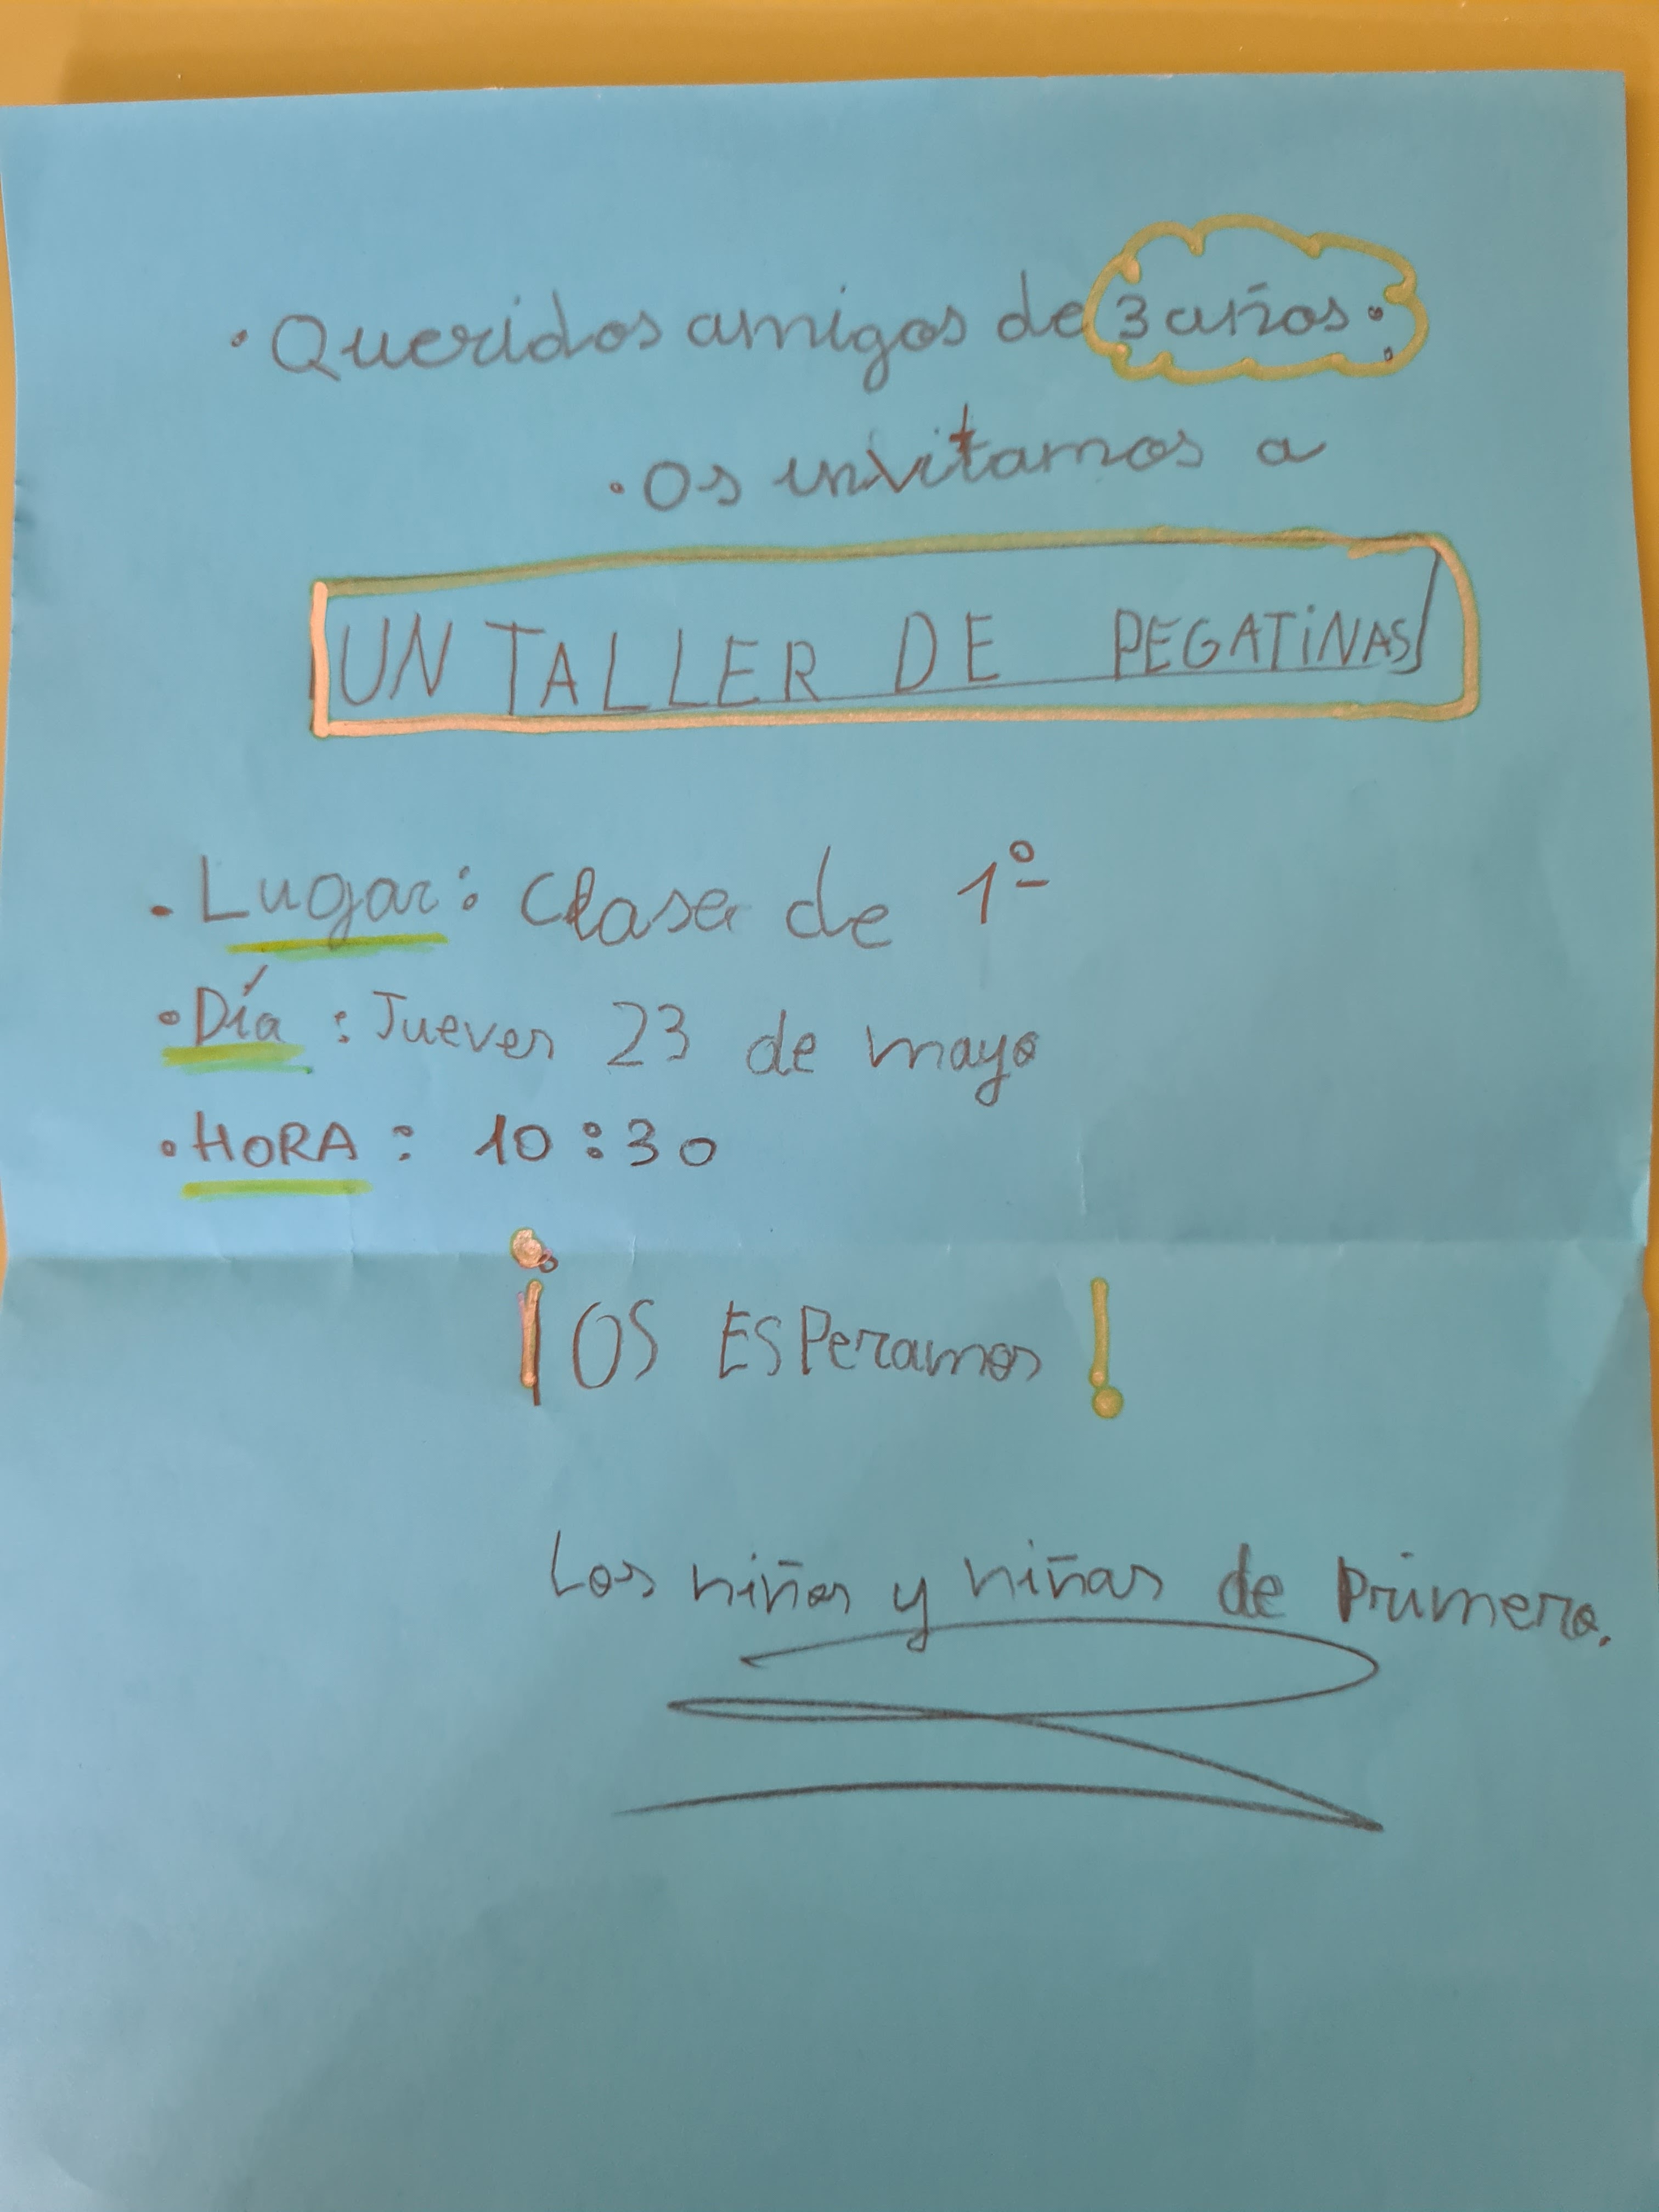 · Queridos amigos de 3 años:
· Os invitamos a
UN TALLER DE PEGATiNAS
. Lugar: Clase de 1º
· Día : Jueves 23 de mayo
· HORA : 10:30
¡OS ESPeramos!
Los niños y niñas de Primero.